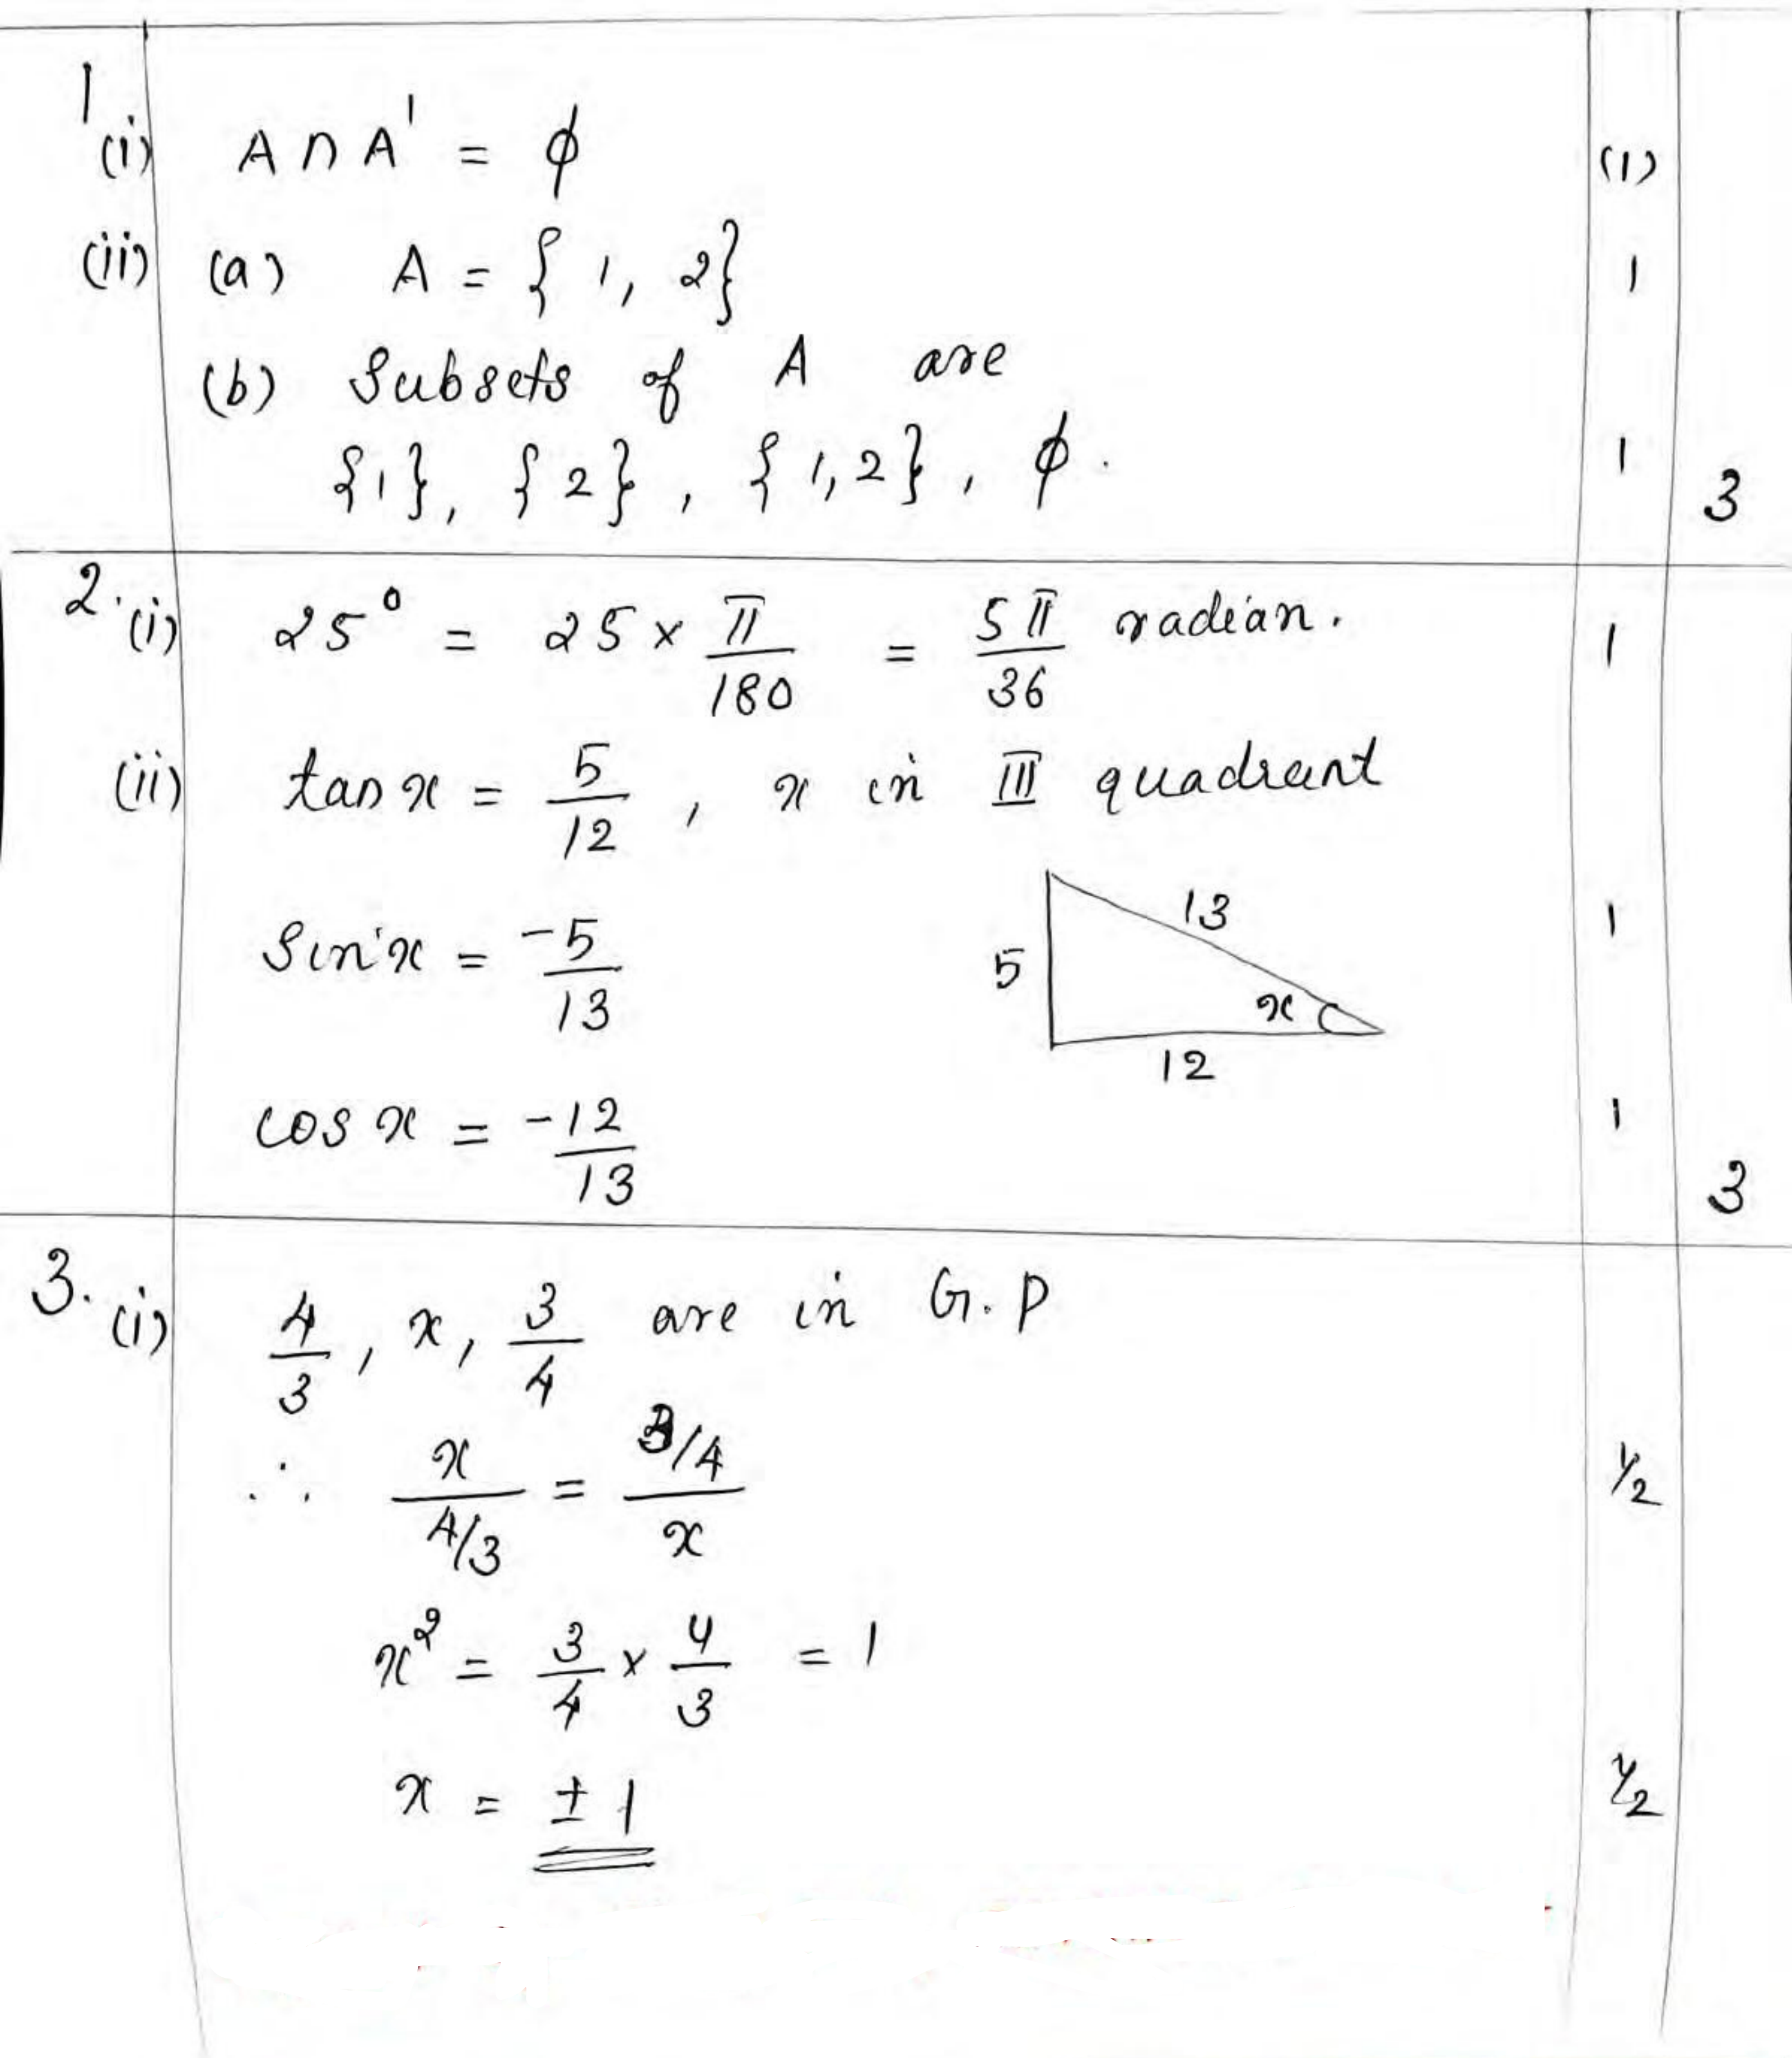 1
(i) A ∩ A' = ϕ (1)
(ii) (a) A = { 1, 2} 1
(b) Subsets of A are
{1}, {2}, {1,2}, ϕ. 1 3
2. (i) 25° = 25 × π/180 = 5π/36 radian. 1
(ii) tan x = 5/12 , x in III quadrant
13
Sin x = -5/13 5 x 1
12
cos x = -12/13 1
3
3. (i) 4/3 , x, 3/4 are in G.P
∴ x / 4/3 = 3/4 / x 1/2
x² = 3/4 × 4/3 = 1
x = ± 1 1/2